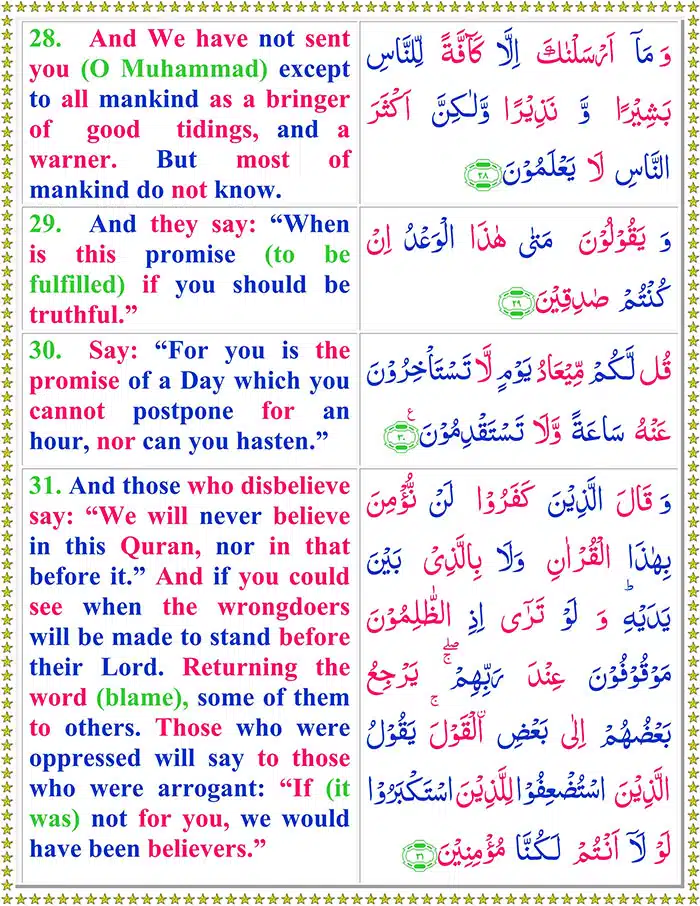 28. And We have not sent
you (O Muhammad) except
to all mankind as a bringer
of good tidings, and a
warner. But most of
mankind do not know.
وَ مَاۤ اَرْسَلْنٰكَ اِلَّا كَآفَّةً لِّلنَّاسِ
بَشِيْرًا وَّ نَذِيْرًا وَّلٰكِنَّ اَكْثَرَ
النَّاسِ لَا يَعْلَمُوْنَ ۲۸
29. And they say: “When
is this promise (to be
fulfilled) if you should be
truthful.”
وَ يَقُوْلُوْنَ مَتٰى هٰذَا الْوَعْدُ اِنْ
كُنْتُمْ صٰدِقِيْنَ ۲۹
30. Say: “For you is the
promise of a Day which you
cannot postpone for an
hour, nor can you hasten.”
قُل لَّكُمْ مِّيْعَادُ يَوْمٍ لَّا تَسْتَاْخِرُوْنَ
عَنْهُ سَاعَةً وَّلَا تَسْتَقْدِمُوْنَ ۳۰ ع
31. And those who disbelieve
say: “We will never believe
in this Quran, nor in that
before it.” And if you could
see when the wrongdoers
will be made to stand before
their Lord. Returning the
word (blame), some of them
to others. Those who were
oppressed will say to those
who were arrogant: “If (it
was) not for you, we would
have been believers.”
وَ قَالَ الَّذِيْنَ كَفَرُوْا لَنْ نُّؤْمِنَ
بِهٰذَا الْقُرْاٰنِ وَلَا بِالَّذِىْ بَيْنَ
يَدَيْهِ ؕ وَ لَوْ تَرٰٓى اِذِ الظّٰلِمُوْنَ
مَوْقُوْفُوْنَ عِنْدَ رَبِّهِمْ ۖۚ يَرْجِعُ
بَعْضُهُمْ اِلٰى بَعْضِ ۨالْقَوْلَ ۚ يَقُوْلُ
الَّذِيْنَ اسْتُضْعِفُوْا لِلَّذِيْنَ اسْتَكْبَرُوْا
لَوْ لَاۤ اَنْتُمْ لَكُنَّا مُؤْمِنِيْنَ ۳۱